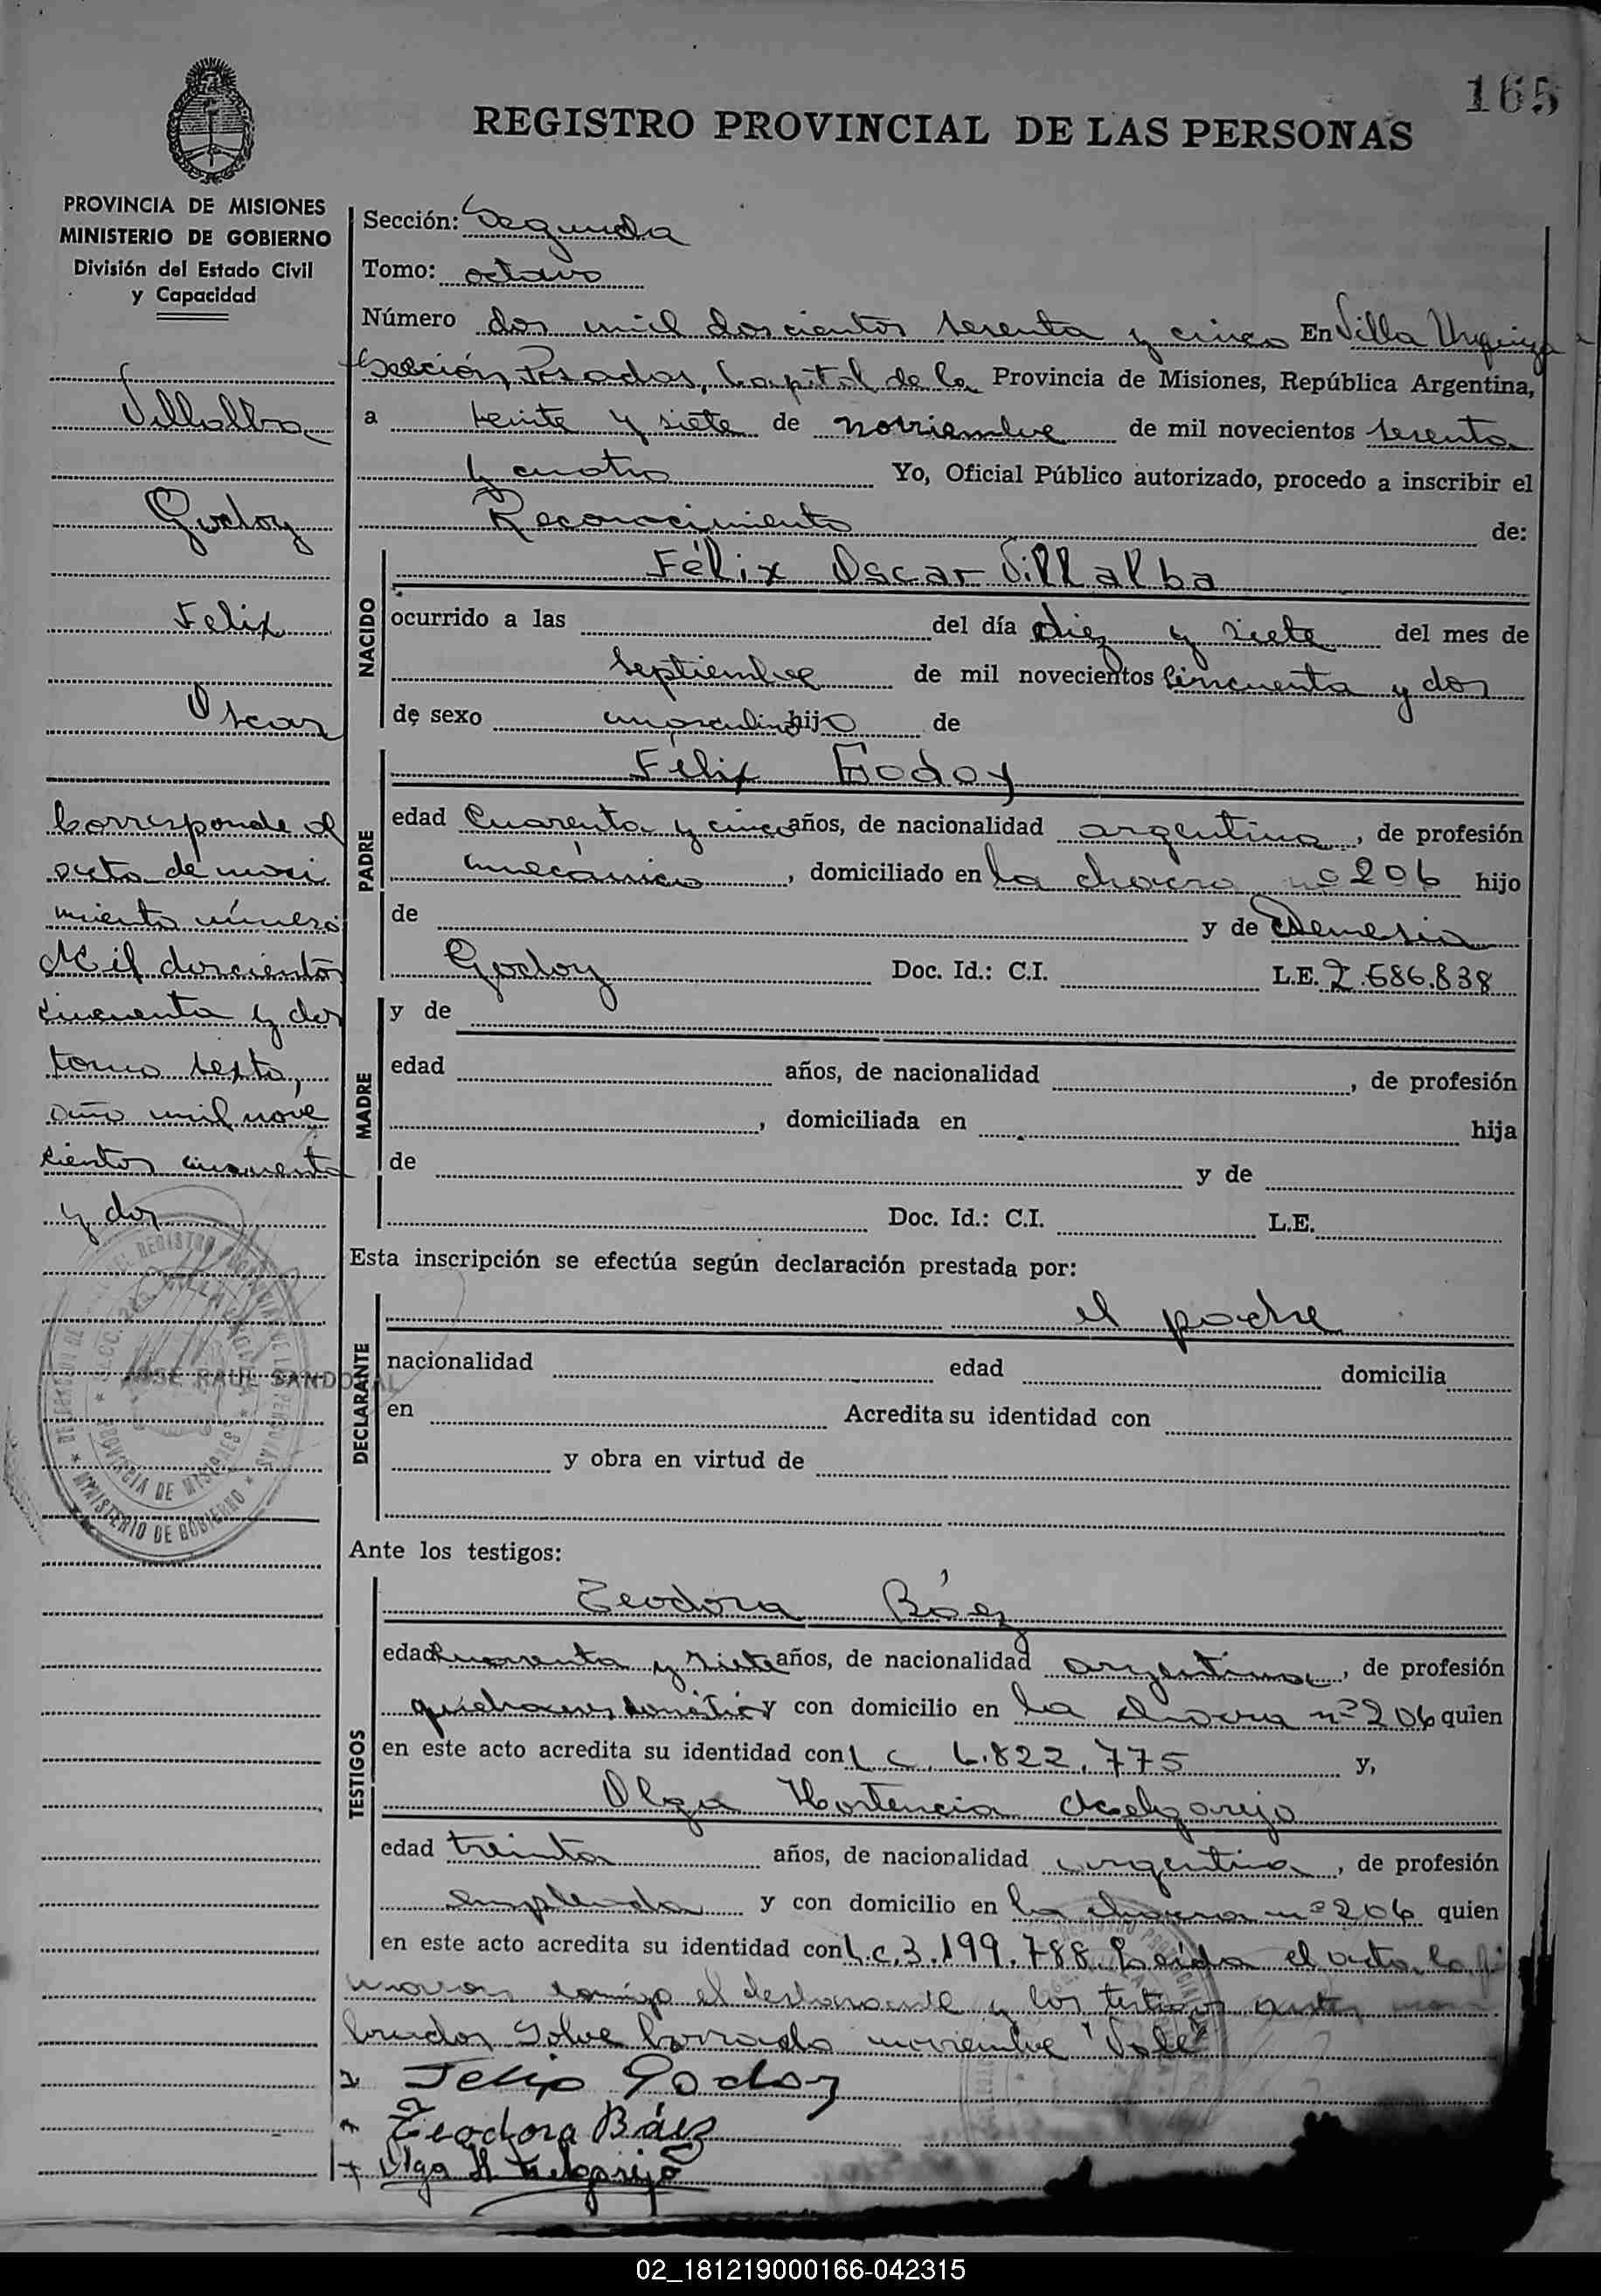 165
REGISTRO PROVINCIAL DE LAS PERSONAS
PROVINCIA DE MISIONES
MINISTERIO DE GOBIERNO
División del Estado Civil
y Capacidad
Villalba
Godoy
Felix
Oscar
Corresponde al
acta de naci
miento número
Mil doscientos
cincuenta y dos
tomo sexto,
año mil nove
cientos cincuenta
y dos
JOSE RAUL SANDOVAL
PROVINCIA DE MISIONES
MINISTERIO DE GOBIERNO
Sección: Segunda
Tomo: octavo
Número dos mil doscientos sesenta y cinco En Villa Urquiza
Sección Posadas, Capital de la Provincia de Misiones, República Argentina,
a veinte y siete de noviembre de mil novecientos sesenta
y cuatro Yo, Oficial Público autorizado, procedo a inscribir el
Reconocimiento de:
NACIDO
Félix Oscar Villalba
ocurrido a las del día diez y siete del mes de
septiembre de mil novecientos cincuenta y dos
de sexo masculino hijo de
PADRE
Félix Godoy
edad Cuarenta y cinco años, de nacionalidad argentina, de profesión
mecánico, domiciliado en la chacra nº 206 hijo
de y de Nemesia
Godoy Doc. Id.: C.I. L.E. 2.586.838
MADRE
y de
edad años, de nacionalidad , de profesión
, domiciliada en hija
de y de
Doc. Id.: C.I. L.E.
Esta inscripción se efectúa según declaración prestada por:
DECLARANTE
el padre
nacionalidad edad domicilia
en Acredita su identidad con
y obra en virtud de
Ante los testigos:
TESTIGOS
Teodora Báez
edad cuarenta y siete años, de nacionalidad argentina, de profesión
quehaceres domésticos y con domicilio en la chacra nº 206 quien
en este acto acredita su identidad con L C. 6.822.775 y,
Olga Hortencia Melgarejo
edad treinta años, de nacionalidad argentina, de profesión
empleada y con domicilio en la chacra nº 206 quien
en este acto acredita su identidad con L.C. 3.199.788. Leída el acta, la fir
maron conmigo el declarante y los testigos antes nom
brados Sobre borrado noviembre "Vale"
x Felix Godoy
x Teodora Báez
x Olga H Melgarejo
02_181219000166-042315